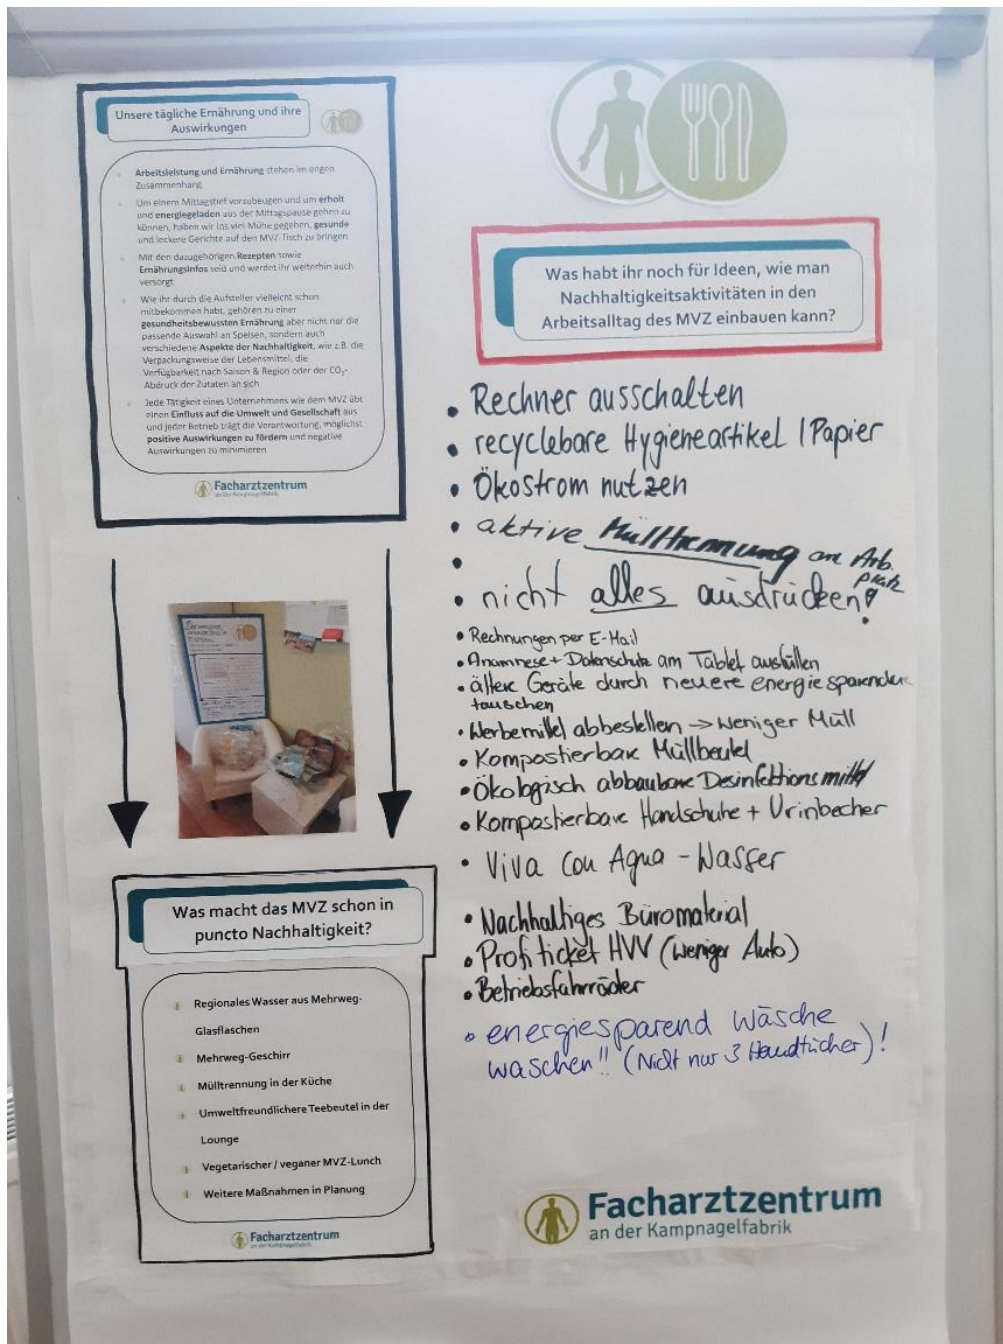 Unsere tägliche Ernährung und ihre
Auswirkungen
Arbeitsleistung und Ernährung stehen im engen
Zusammenhang
Um einem Mittagstief vorzubeugen und um erholt
und energiegeladen aus der Mittagspause gehen zu
können, haben wir uns viel Mühe gegeben, gesunde
und leckere Gerichte auf den MVZ-Tisch zu bringen
Mit den dazugehörigen Rezepten sowie
Ernährungsinfos seid und werdet ihr weiterhin auch
versorgt
Wie ihr durch die Aufsteller vielleicht schon
mitbekommen habt, gehören zu einer
gesundheitsbewussten Ernährung aber nicht nur die
passende Auswahl an Speisen, sondern auch
verschiedene Aspekte der Nachhaltigkeit, wie z.B. die
Verpackungsweise der Lebensmittel, die
Verfügbarkeit nach Saison & Region oder der CO₂-
Abdruck der Zutaten an sich
Jede Tätigkeit eines Unternehmens wie dem MVZ übt
einen Einfluss auf die Umwelt und Gesellschaft aus
und jeder Betrieb trägt die Verantwortung, möglichst
positive Auswirkungen zu fördern und negative
Auswirkungen zu minimieren
Facharztzentrum
an der Kampnagelfabrik
Was macht das MVZ schon in
puncto Nachhaltigkeit?
Regionales Wasser aus Mehrweg-
Glasflaschen
Mehrweg-Geschirr
Mülltrennung in der Küche
Umweltfreundlichere Teebeutel in der
Lounge
Vegetarischer / veganer MVZ-Lunch
Weitere Maßnahmen in Planung
Facharztzentrum
an der Kampnagelfabrik
Was habt ihr noch für Ideen, wie man
Nachhaltigkeitsaktivitäten in den
Arbeitsalltag des MVZ einbauen kann?
• Rechner ausschalten
• recyclebare Hygieneartikel / Papier
• Ökostrom nutzen
• aktive Mülltrennung am Arb.
platz
• nicht alles ausdrücken!
• Rechnungen per E-Mail
• Anamnese + Datenschutz am Tablet ausfüllen
• ältere Geräte durch neuere energiesparendere
tauschen
• Werbemittel abbestellen → weniger Müll
• Kompostierbare Müllbeutel
• Ökologisch abbaubare Desinfektionsmittel
• Kompostierbare Handschuhe + Urinbecher
• Viva con Agua - Wasser
• Nachhaltiges Büromaterial
• Profiticket HVV (weniger Auto)
• Betriebsfahrräder
• energiesparend Wäsche
waschen!! (Nicht nur 3 Handtücher)!
Facharztzentrum
an der Kampnagelfabrik